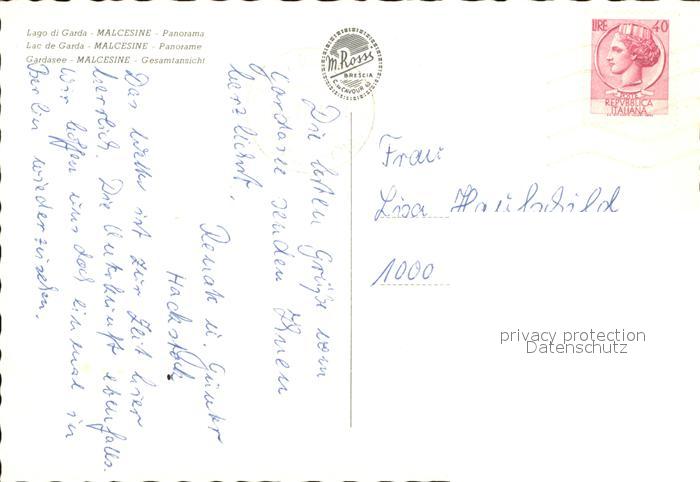 Lago di Garda - MALCESINE - Panorama
Lac de Garda - MALCESINE - Panorame
Gardasee - MALCESINE - Gesamtansicht
M. Rossi
BRESCIA
C. so CAVOUR 43
LIRE 40
POSTE
REPVBBLICA
ITALIANA
Die besten Grüße vom
Gardasee senden Ihnen
herzlichst.
Renate u. Günter
Das Wetter ist zur Zeit hier
herrlich. Die Unterkunft ebenfalls.
Wir hoffen uns doch einmal in
Berlin wiederzusehen.
Frau
Lisa
1000
privacy protection
Datenschutz